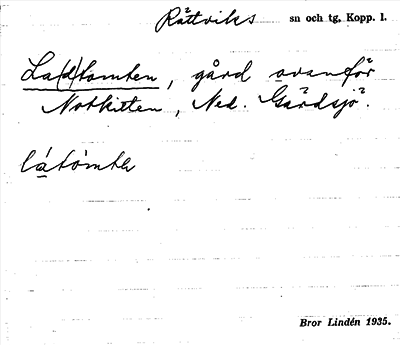 Rättviks sn och tg. Kopp. l.
La(d)tomten, gård ovanför
Notkitten, Ned. Gärdsjö.
låtòmtɐ
Bror Lindén 1935.